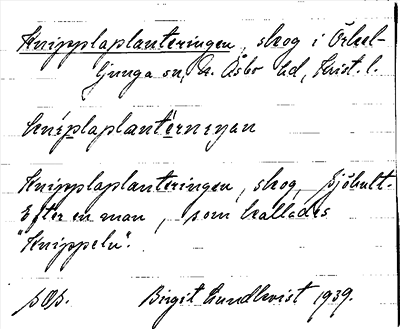 Knipplaplanteringen, skog i Örkel-
ljunga sn, N. Åsbo hd, Krist. l.
kníplaplantérneŋan
Knipplaplanteringen, skog,
Efter en man, som kallades
"Knippeln".
Birgit Lundkvist 1939.